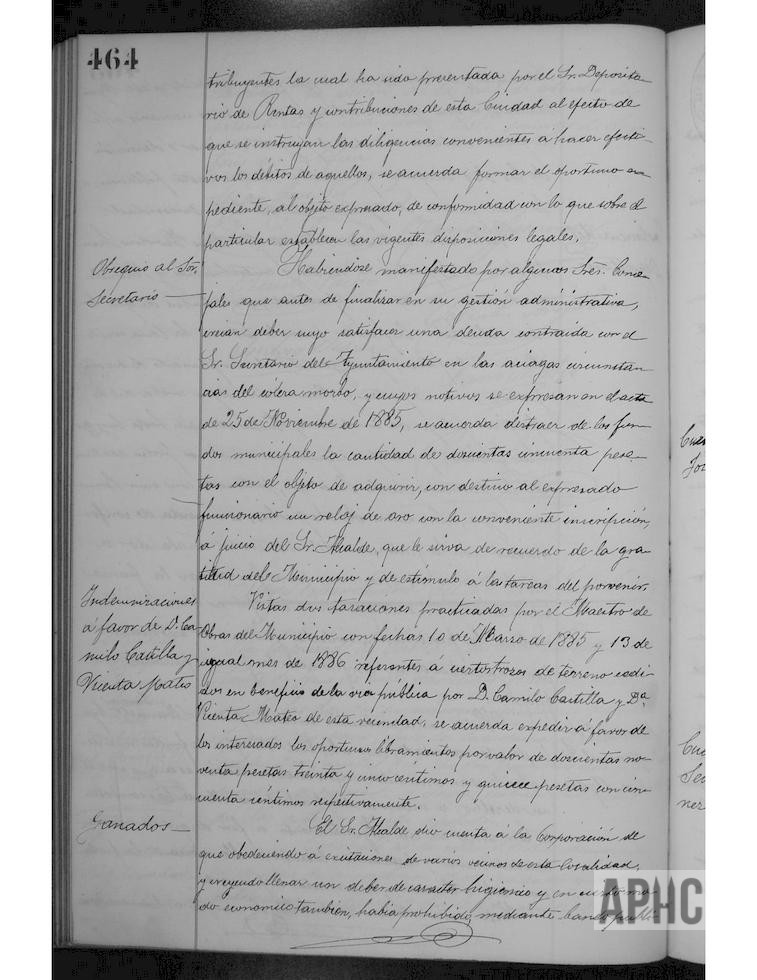 464
tribuyentes la cual ha sido presentada por el Sr. Deposita-
rio de Rentas y contribuciones de esta Ciudad al efecto de
que se instruyan las diligencias convenientes á hacer efecti-
vos los débitos de aquellos, se acuerda formar el oportuno ex-
pediente, al objeto expresado, de conformidad con lo que sobre el
particular establecen las vigentes disposiciones legales.
Obsequio al Sr.
Secretario
Habiendose manifestado por algunos Sres. Conce-
jales que antes de finalizar en su gestión administrativa,
creian deber suyo satisfacer una deuda contraida con el
Sr. Secretario del Ayuntamiento en las aciagas circunstan-
cias del cólera morbo, y cuyos motivos se expresan en el acta
de 25 de Noviembre de 1885, se acuerda distraer de los fon-
dos municipales la cantidad de doscientas cincuenta pese-
tas con el objeto de adquirir, con destino al expresado
funcionario un reloj de oro con la conveniente inscripción,
á juicio del Sr. Alcalde, que le sirva de recuerdo de la gra-
titud del Municipio y de estímulo á las tareas del porvenir.
Indemnizaciones
á favor de D. Ca-
milo Castilla y
Vicenta Mateo
Vistas dos tasaciones practicadas por el Maestro de
Obras del Municipio con fechas 10 de Marzo de 1885 y 13 de
igual mes de 1886 referentes á ciertos trozos de terreno cedi-
dos en beneficio de la via pública por D. Camilo Castilla y Dª
Vicenta Mateo de esta vecindad, se acuerda expedir á favor de
los interesados los oportunos libramientos por valor de doscientas no-
venta pesetas treinta y cinco céntimos y quince pesetas con cin-
cuenta céntimos respectivamente.
Ganados
El Sr. Alcalde dio cuenta á la Corporación de
que obedeciendo á excitaciones de varios vecinos de esta localidad,
y creyendo llenar un deber de caracter higienico y en cierto mo-
do economico tambien, habia prohibido, mediante bando publi-
APHC